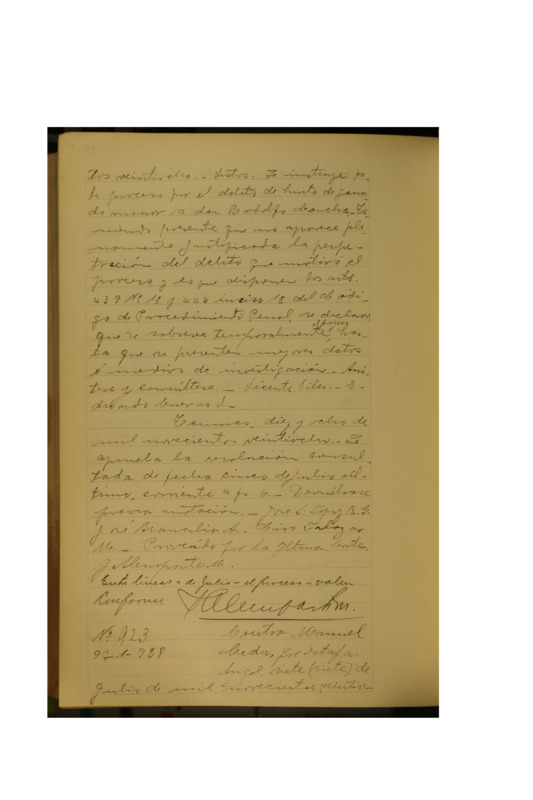 tos veintiocho. - Vistos: Se instruye es-
te proceso por el delito de hurto de gana-
do menor a don Rodolfo Concha. Te-
niendo presente que no aparece ple-
namente justificada la perpe-
tración del delito que motivó el
proceso y lo que disponen los arts.
439 Nº 1º y 444 inciso 1º del Códi-
go de Procedimiento Penal, se declara
que se sobresee temporalmente el proceso has-
ta que se presenten mejores datos
ó medios de investigación. - Anó-
tese y consúltese. - Vicente Viles. - E-
duardo Cuevas J. -
Temuco, diez y ocho de
mil novecientos veintiocho. - Se
aprueba la resolución consul-
tada de fecha cinco de julio úl-
timo, corriente a fs. 6. - Devuélvase
previa anotación. - José L. López
José A. - Ciro Salazar
M. - Proveído por la Iltma. Corte.
J. Alemparte M.
Entre líneas - de Julio - el proceso - valen
Conforme
JAlemparte M.
Nº 923
Contra Manuel
Cerda, por estafa.
Angol, siete (siete) de
Julio de mil novecientos veintio-